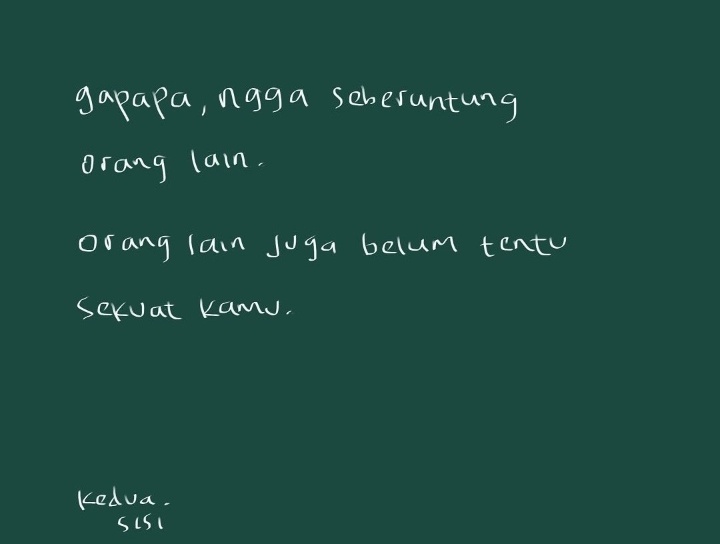 gapapa, ngga seberuntung
orang lain.
orang lain juga belum tentu
sekuat kamu.
kedua.
sisi